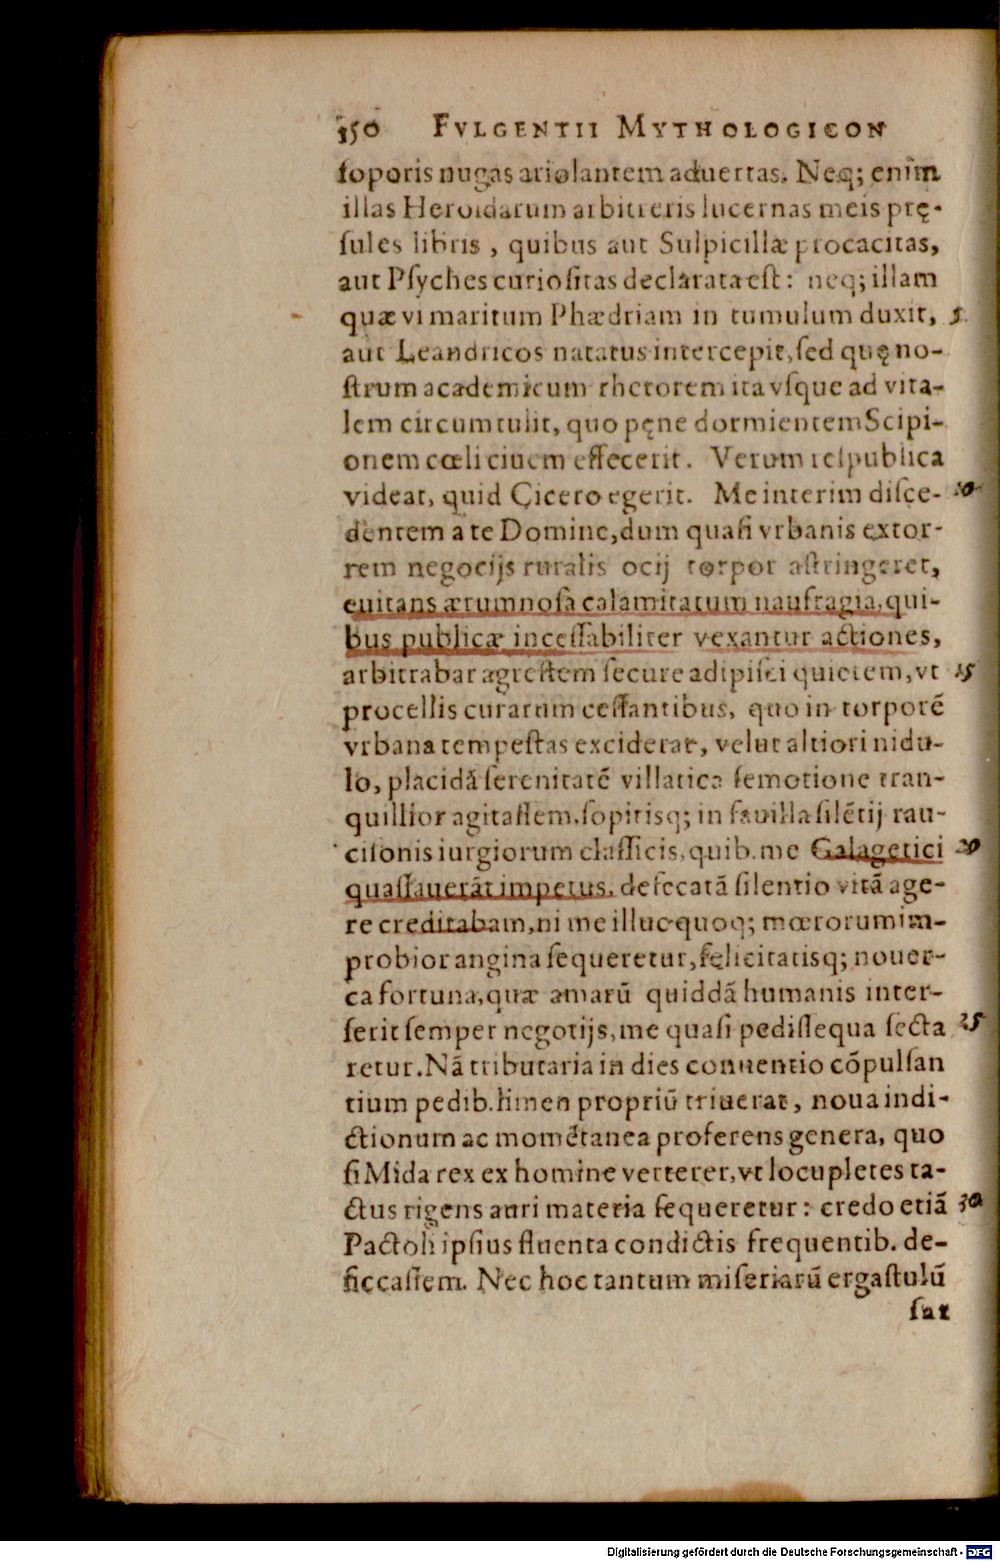 150 FVLGENTII MYTHOLOGICON
ſoporis nugas ariolantem aduertas. Neq; enim
illas Heroidarum arbitreris lucernas meis prę-
ſules libris, quibus aut Sulpicillæ procacitas,
aut Pſyches curioſitas declarata eſt: neq; illam
quæ vi maritum Phædriam in tumulum duxit, 5
aut Leandricos natatus intercepit, ſed quę no-
ſtrum academicum rhetorem ita vſque ad vita-
lem circumtulit, quo pęne dormientem Scipi-
onem cœli ciuem effecerit. Verum reſpublica
videat, quid Cicero egerit. Me interim diſce- 10
dentem a te Domine, dum quaſi vrbanis extor-
rem negocijs ruralis ocij torpor aſtringeret,
euitans ærumnoſa calamitatum naufragia, qui-
bus publicæ inceſſabiliter vexantur actiones,
arbitrabar agreſtem ſecure adipiſci quietem, vt 15
procellis curarum ceſſantibus, quo in torporē
vrbana tempeſtas exciderat, velut altiori nidu-
lo, placidā ſerenitatē villatica ſemotione tran-
quillior agitaſſem. ſopitisq; in fauilla ſilētij rau-
ciſonis iurgiorum claſſicis, quib. me Galagetici 20
quaſſauerāt impetus. defecatā ſilentio vitā age-
re creditabam, ni me illuc quoq; mœrorum im-
probior angina ſequeretur, fęlicitatisq; nouer-
ca fortuna, quæ amarū quiddā humanis inter-
ſerit ſemper negotijs, me quaſi pediſſequa ſecta 25
retur. Nā tributaria in dies conuentio cōpulſan
tium pedib. limen propriū triuerat, noua indi-
ctionum ac momētanea proferens genera, quo
ſi Mida rex ex homine verterer, vt locupletes ta-
ctus rigens auri materia ſequeretur: credo etiā 30
Pactoli ipſius fluenta condictis frequentib. de-
ſiccaſſem. Nec hoc tantum miſeriarū ergaſtulū
ſat
Digitalisierung gefördert durch die Deutsche Forschungsgemeinschaft - DFG